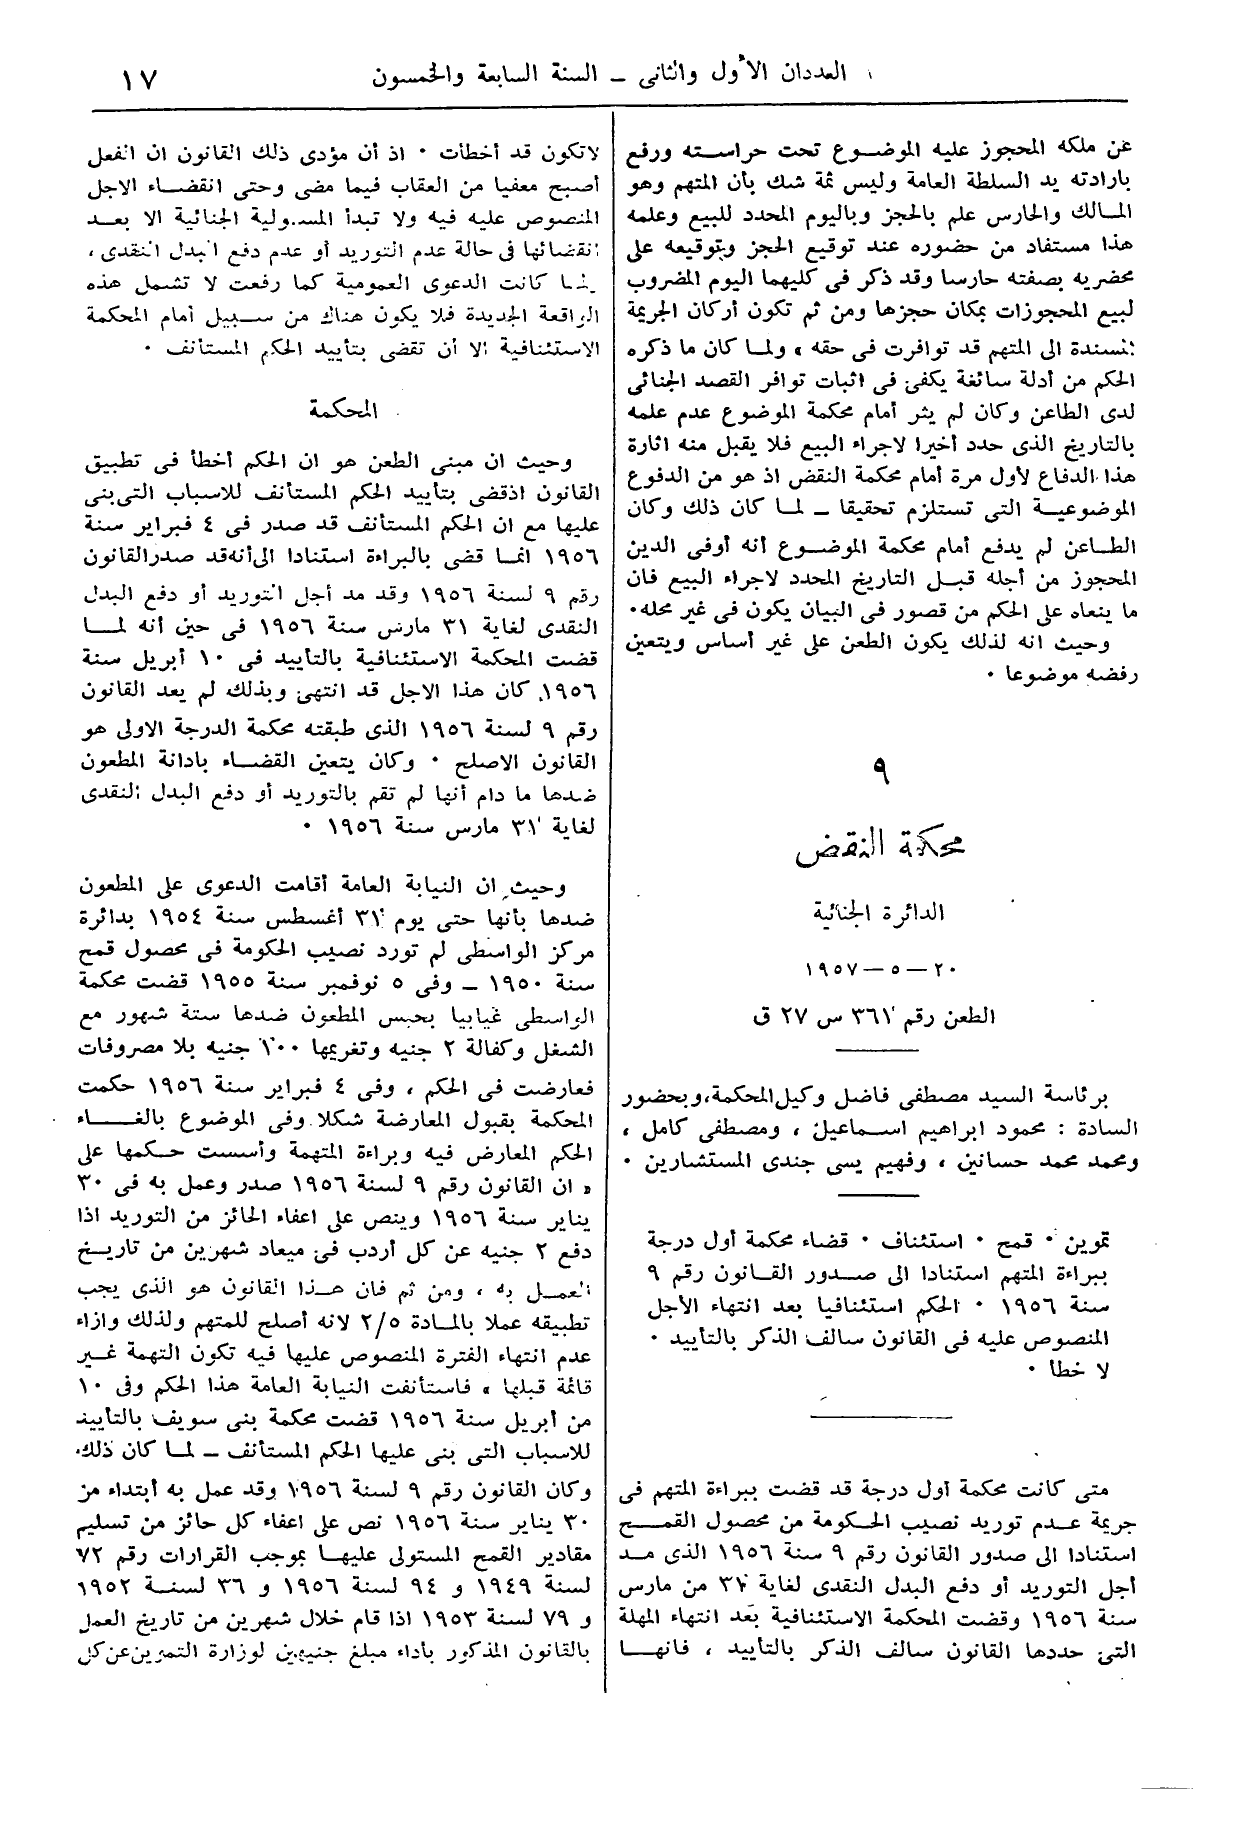 العددان الأول والثانى – السنة السابعة والخمسون
١٧
عن ملكه المحجوز عليه الموضوع تحت حراسته ورفع
بارادته يد السلطة العامة وليس ثمة شك بأن المتهم وهو
المالك والحارس علم بالحجز وباليوم المحدد للبيع وعلمه
هذا مستفاد من حضوره عند توقيع الحجز وبتوقيعه على
محضريه بصفته حارسا وقد ذكر فى كليهما اليوم المضروب
لبيع المحجوزات بمكان حجزها ومن ثم تكون أركان الجريمة
المسندة الى المتهم قد توافرت فى حقه » ولما كان ما ذكره
الحكم من أدلة سائغة يكفى فى اثبات توافر القصد الجنائى
لدى الطاعن وكان لم يثر أمام محكمة الموضوع عدم علمه
بالتاريخ الذى حدد أخيرا لاجراء البيع فلا يقبل منه اثارة
هذا الدفاع لأول مرة أمام محكمة النقض اذ هو من الدفوع
الموضوعية التى تستلزم تحقيقا – لما كان ذلك وكان
الطاعن لم يدفع أمام محكمة الموضوع أنه أوفى الدين
المحجوز من أجله قبل التاريخ المحدد لاجراء البيع فان
ما ينعاه على الحكم من قصور فى البيان يكون فى غير محله٠
وحيث انه لذلك يكون الطعن على غير أساس ويتعين
رفضه موضوعا ٠
٩
محكمة النقض
الدائرة الجنائية
٢٠ – ٥ – ١٩٥٧
الطعن رقم ٣٦١ س ٢٧ ق
برئاسة السيد مصطفى فاضل وكيل المحكمة، وبحضور
السادة : محمود ابراهيم اسماعيل ، ومصطفى كامل ،
ومحمد محمد حسانين ، وفهيم يسى جندى المستشارين ٠
تموين ٠ قمح ٠ استئناف ٠ قضاء محكمة أول درجة
ببراءة المتهم استنادا الى صدور القانون رقم ٩
سنة ١٩٥٦ ٠ الحكم استئنافيا بعد انتهاء الأجل
المنصوص عليه فى القانون سالف الذكر بالتأييد ٠
لا خطأ ٠
متى كانت محكمة أول درجة قد قضت ببراءة المتهم فى
جريمة عدم توريد نصيب الحكومة من محصول القمح
استنادا الى صدور القانون رقم ٩ سنة ١٩٥٦ الذى مد
أجل التوريد أو دفع البدل النقدى لغاية ٣١ من مارس
سنة ١٩٥٦ وقضت المحكمة الاستئنافية بعد انتهاء المهلة
التى حددها القانون سالف الذكر بالتأييد ، فانها
لاتكون قد أخطأت ٠ اذ أن مؤدى ذلك القانون ان الفعل
أصبح معفيا من العقاب فيما مضى وحتى انقضاء الاجل
المنصوص عليه فيه ولا تبدأ المسئولية الجنائية الا بعد
انقضائها فى حالة عدم التوريد أو عدم دفع البدل النقدى ،
ولما كانت الدعوى العمومية كما رفعت لا تشمل هذه
الواقعة الجديدة فلا يكون هناك من سبيل أمام المحكمة
الاستئنافية الا أن تقضى بتأييد الحكم المستأنف ٠
المحكمة
وحيث ان مبنى الطعن هو ان الحكم أخطأ فى تطبيق
القانون اذقضى بتأييد الحكم المستأنف للاسباب التى بنى
عليها مع ان الحكم المستأنف قد صدر فى ٤ فبراير سنة
١٩٥٦ انما قضى بالبراءة استنادا الى أنه قد صدر القانون
رقم ٩ لسنة ١٩٥٦ وقد مد أجل التوريد أو دفع البدل
النقدى لغاية ٣١ مارس سنة ١٩٥٦ فى حين أنه لما
قضت المحكمة الاستئنافية بالتأييد فى ١٠ أبريل سنة
١٩٥٦ كان هذا الاجل قد انتهى وبذلك لم يعد القانون
رقم ٩ لسنة ١٩٥٦ الذى طبقته محكمة الدرجة الاولى هو
القانون الاصلح ٠ وكان يتعين القضاء بادانة المطعون
ضدها ما دام أنها لم تقم بالتوريد أو دفع البدل النقدى
لغاية ٣١ مارس سنة ١٩٥٦ ٠
وحيث ان النيابة العامة أقامت الدعوى على المطعون
ضدها بأنها حتى يوم ٣١ أغسطس سنة ١٩٥٤ بدائرة
مركز الواسطى لم تورد نصيب الحكومة فى محصول قمح
سنة ١٩٥٠ – وفى ٥ نوفمبر سنة ١٩٥٥ قضت محكمة
الواسطى غيابيا بحبس المطعون ضدها ستة شهور مع
الشغل وكفالة ٢ جنيه وتغريمها ١٠٠ جنيه بلا مصروفات
فعارضت فى الحكم ، وفى ٤ فبراير سنة ١٩٥٦ حكمت
المحكمة بقبول المعارضة شكلا وفى الموضوع بالغاء
الحكم المعارض فيه وبراءة المتهمة وأسست حكمها على
« ان القانون رقم ٩ لسنة ١٩٥٦ صدر وعمل به فى ٣٠
يناير سنة ١٩٥٦ وينص على اعفاء الحائز من التوريد اذا
دفع ٢ جنيه عن كل أردب فى ميعاد شهرين من تاريخ
العمل به ، ومن ثم فان هذا القانون هو الذى يجب
تطبيقه عملا بالمادة ٢/٥ لانه أصلح للمتهم ولذلك وازاء
عدم انتهاء الفترة المنصوص عليها فيه تكون التهمة غير
قائمة قبلها » فاستأنفت النيابة العامة هذا الحكم وفى ١٠
من أبريل سنة ١٩٥٦ قضت محكمة بنى سويف بالتأييد
للاسباب التى بنى عليها الحكم المستأنف – لما كان ذلك
وكان القانون رقم ٩ لسنة ١٩٥٦ وقد عمل به أبتداء من
٣٠ يناير سنة ١٩٥٦ نص على اعفاء كل حائز من تسليم
مقادير القمح المستولى عليها بموجب القرارات رقم ٧٢
لسنة ١٩٤٩ و ٩٤ لسنة ١٩٥٦ و ٣٦ لسنة ١٩٥٢
و ٧٩ لسنة ١٩٥٣ اذا قام خلال شهرين من تاريخ العمل
بالقانون المذكور بأداء مبلغ جنيهين لوزارة التموين عن كل